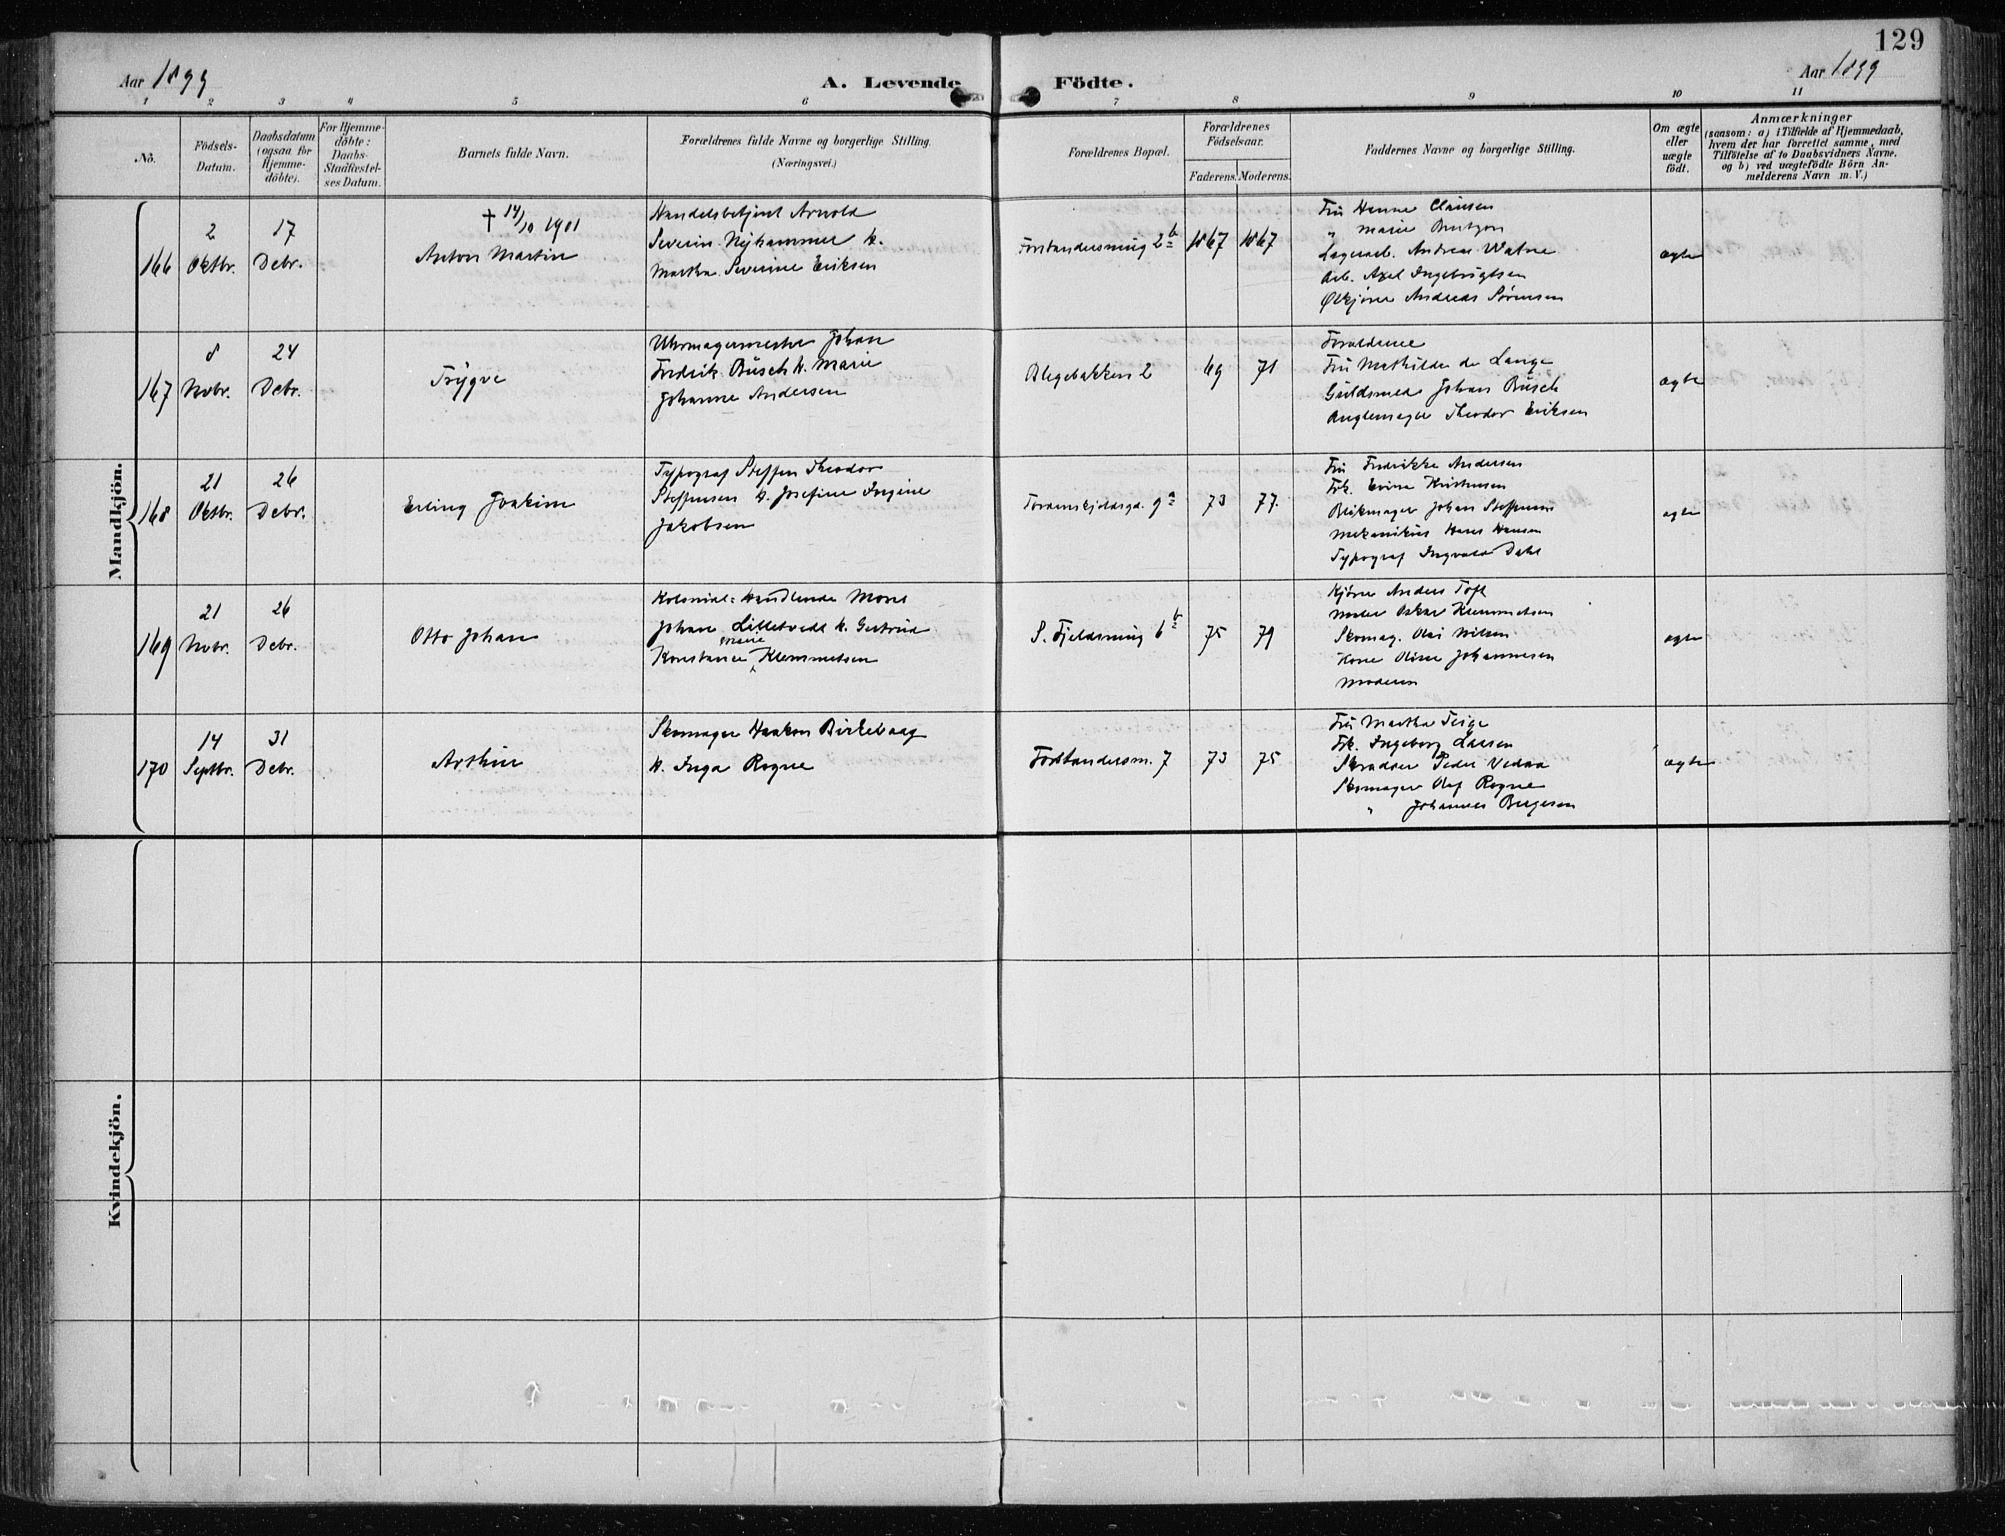 129
Aar 1899
A. Levende Födte.
Aar 1899
1 2 3 4 5 6 7 8 9 10 11
No.
Födsels-Datum.
Daabsdatum (ogsaa for Hjemme-döbte).
For Hjemme-döbte: Daabs-Stadfæstel-ses Datum.
Barnets fulde Navn.
Forældrenes fulde Navne og borgerlige Stilling.
(Næringsvei.)
Forældrenes Bopæl.
Forældrenes Födselsaar.
Faderens. Moderens.
Faddernes Navne og borgerlige Stilling.
Om ægte eller uægte födt.
Anmærkninger
(saasom: a) i Tilfælde af Hjemmedaab,
hvem der har forrettet samme, med
Tilföielse af to Daabsvidners Navne.
og b) ved uægtefödte Börn An-
melderens Navn m. V.)
Mandkjön.
166
2 Oktbr.
17 Debr.
† 14/10 1901
Anton Martin
Handelsbetjent Arnold
Severin Nyhammer &.
Martha Severine Eriksen
Forstandersmug 2b
1867 1867
Fru Hanne Clausen
" Marie
Lagerarb. Andreas Watne
Arb. Axel Ingebrigtsen
Ølkjører Andreas Sørensen
ægte
167
8 Novbr.
24 Debr.
Trygve
Uhrmagermester Johan
Fredrik Busch &. Marie
Johanne Andersen
Blegebakken 2
69 71
Forældrene
Fru Mathilde de Lange
Guldsmed Johan Busch
Theodor Eriksen
ægte
168
21 Oktbr.
26 Debr.
Erling Joakim
Typograf Steffen Theodor
Steffensen &. Josefine Ingine
Jakobsen
Tordenskjoldsgd. 9a
73 77.
Fru Fredrikke Andersen
Frk. Kristensen
Blikmager Johan Steffensen
Mekanikus Hans Hansen
Typograf Ingvald Dahl
ægte
169
21 Novbr.
26 Debr.
Otto Johan
Kolonial-Handlende Mons
Johan Lilletvedt &. Gertrud
Konstance Marie Klemmetsen
S. Fjeldsmug 6b
75 79
Kjører Anders Toft
Maler Oskar Klemmetsen
Skomag. Olai Nilsen
Kone Oline Johannesen
Moderen
ægte
170
14 Septbr.
31 Debr.
Arthur
Skomager Haakon Birkehaag
&. Inga Rogne
Forstandersm. 7
73 75
Fru Martha Teige
Frk. Ingeborg Larsen
Skrædder Peder Vedaa
Skomager Olaf Rogne
" Johannes Bergesen
ægte
Kvindekjön.